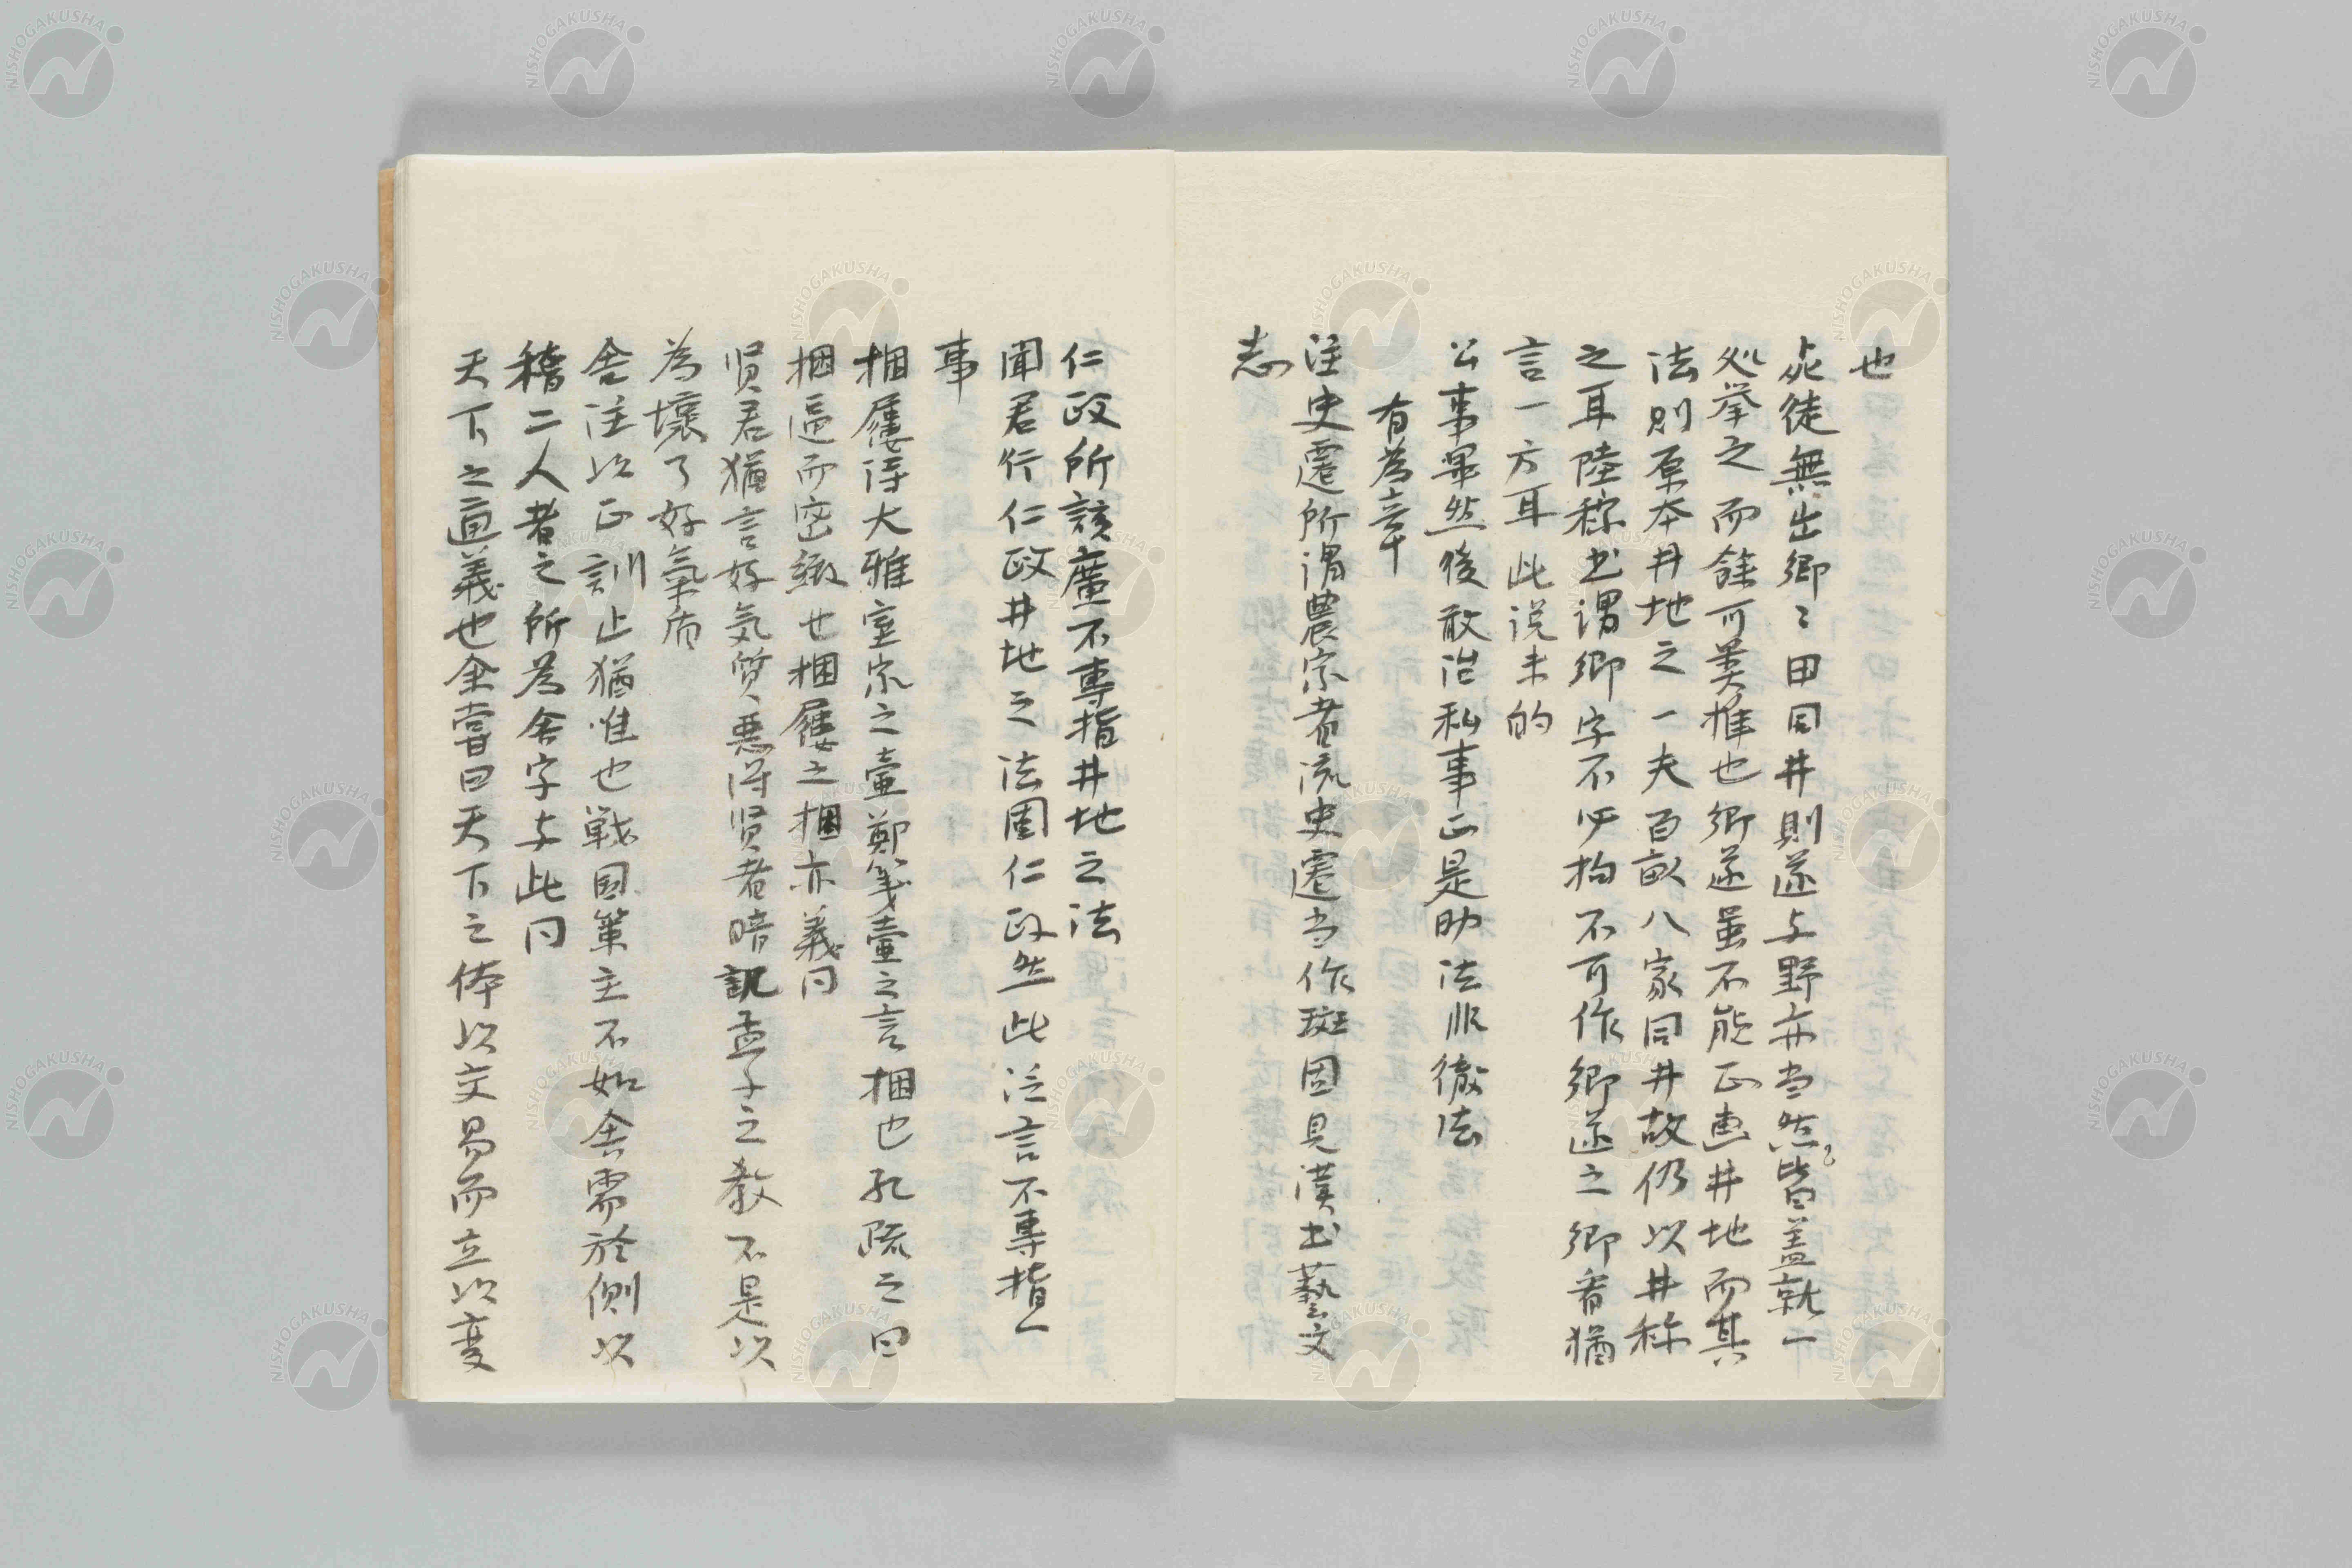 也
死徒無出鄉〻田同井則遂与野亦当然〻皆蓋就一
処挙之而餘可類推也鄉遂虽不能正画井地而其
法則原本井地之一夫百畝八家同井故仍以井称
之耳陸稼书謂鄉字不必拘不可作鄉遂之鄉看猶
言一方耳此説未的
公事畢然後敢治私事正是助法非徹法
有為章
注史遷所謂農家者流史遷当作班固見漢书藝文
志
仁政所該廣不專指井地之法
聞君行仁政井地之法固仁政然此泛言不專指一
事
捆屨詩大雅室家之壼鄭箋壼之言捆也孔疏之曰
捆逼而密緻也捆屨之捆亦義同
賢君猶言好気質惡得賢者暗譏孟子之教不是以
為壞了好氣质
舍注以正訓止猶唯也戦国策主不如舍需於側以
稽二人者之所為舍字与此同
天下之通義也余嘗曰天下之体以交易而立以变